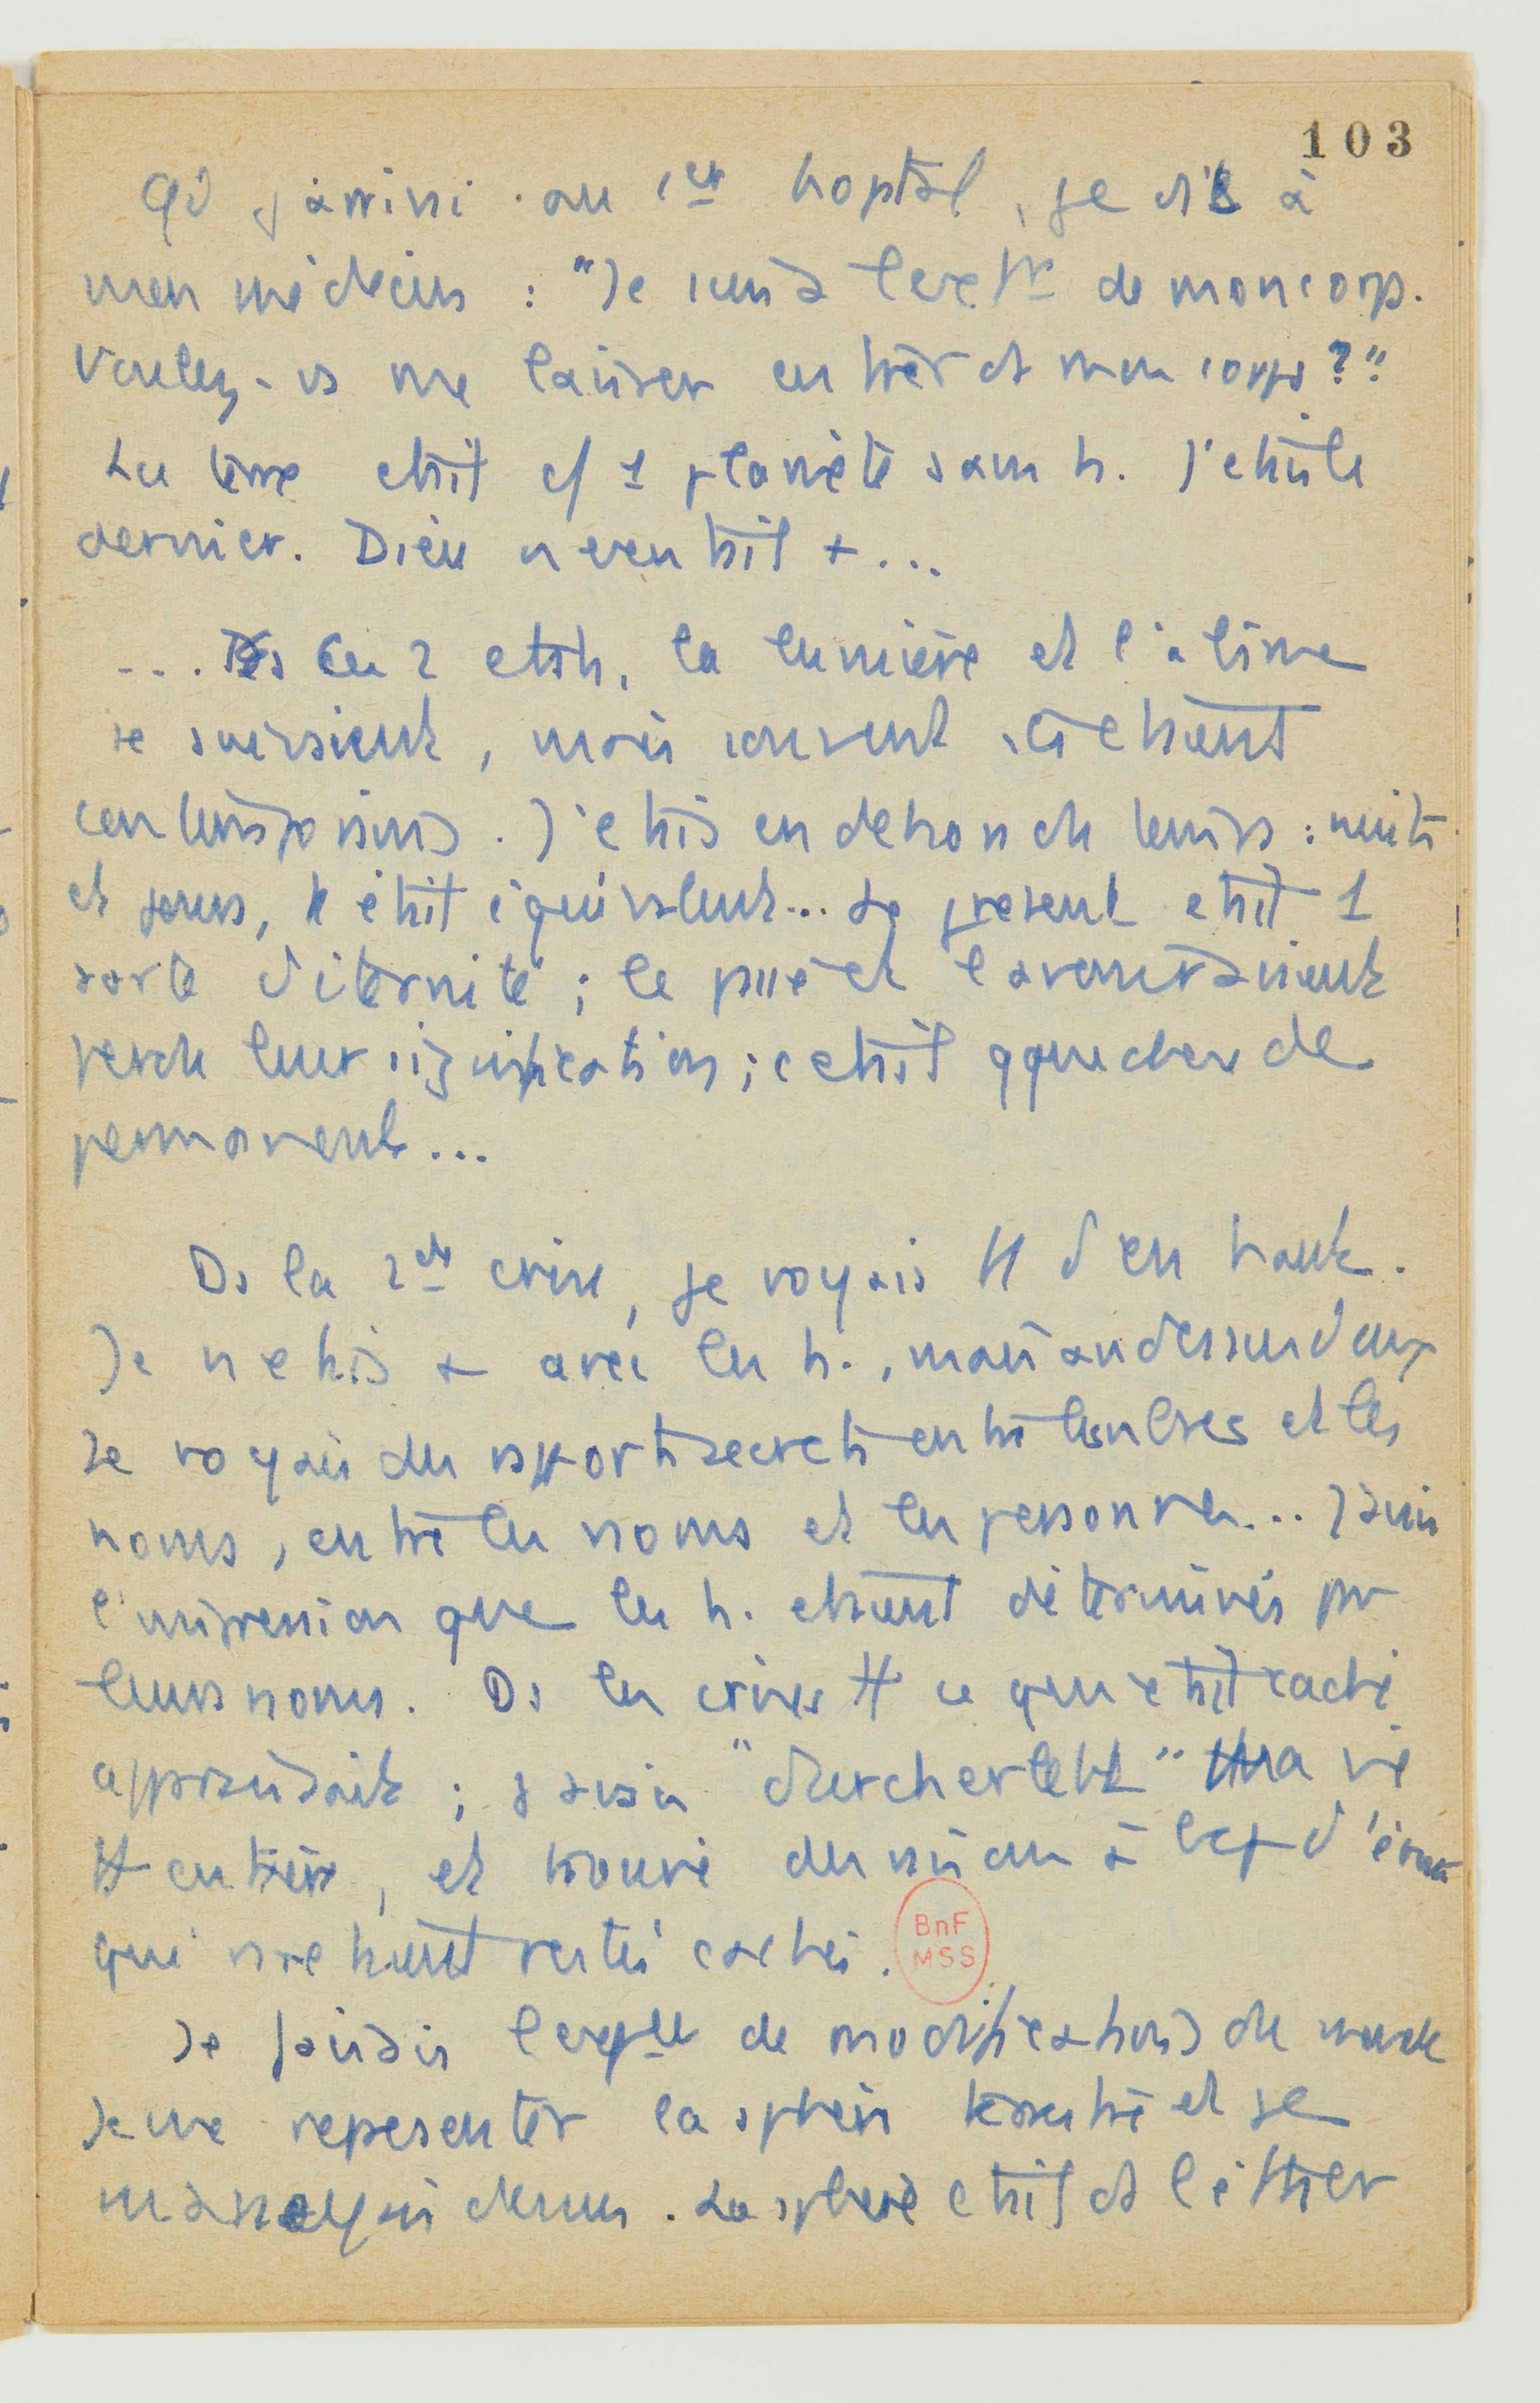 103
Qd j'arrivai au 1er hopital, je dis à
mon médecin : "Je suis à l'extr de mon corps.
Voulez-vs me laisser entrer ds mon corps ?"
La terre etait c/ 1 planète sans h. J'etais le
dernier. Dieu n'existait +...
... Ds Ces 2 etats, la lumière et l'abîme
se suivaient, mais souvent ils etaient
contemporains. J'etais en dehors du temps : nuits
et jours, c'était équivalent... Le présent etait 1
sorte d'éternité ; le passé et l'avenir avaient
perdu leur signification ; c'etait qque chose de
permanent...
Ds la 2de crise, je voyais tt d'en haut.
Je n'etais + avec les h., mais au dessus d'eux
Je voyais des rapports secrets entre les nbres et les
noms, entre les noms et les personnes... J'avais
l'impression que les h. etaient déterminés par
leurs noms. Ds les crises tt ce qui etait caché
apparaissait ; j'avais "durchertebt" ma vie
tt entière, et trouvé du
qui etaient restés cachés.
BnF
MSS
Je faisais l'expce de modifications du monde
Je me representais la sphère terrestre et je
dessus. La sphere etait ds l'éther